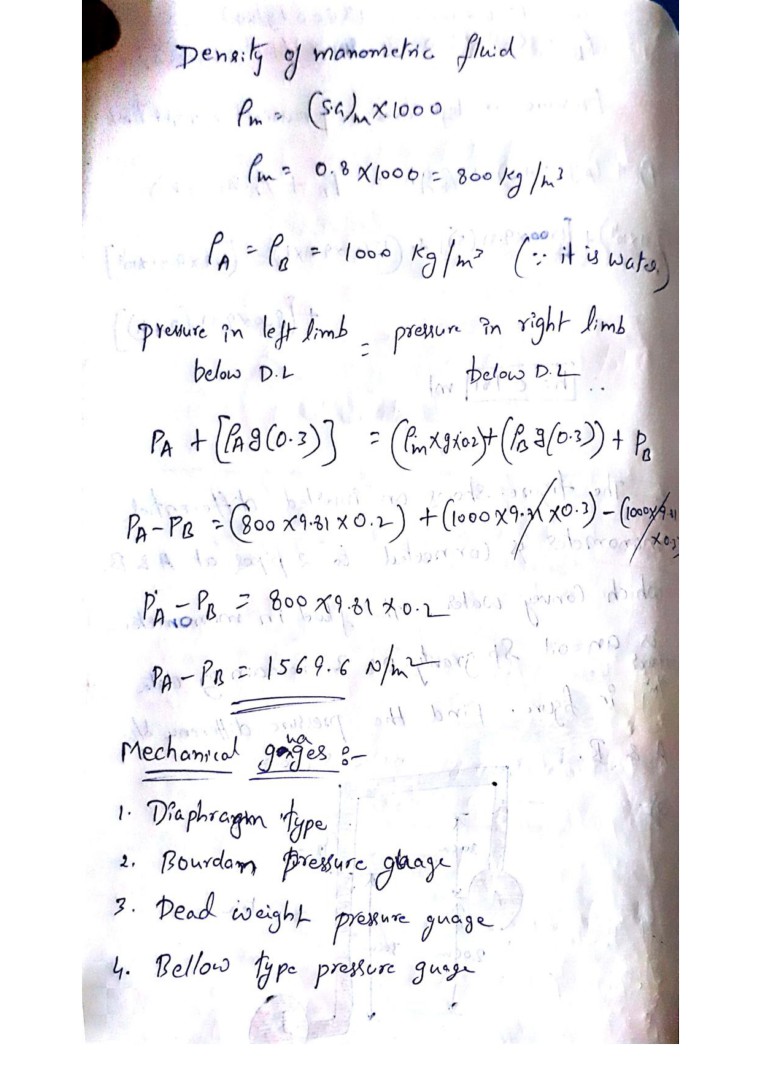 Density of manometric fluid
ρm = (S.G)m × 1000
ρm = 0.8 × 1000 = 800 kg/m³
ρA = ρB = 1000 kg/m³ (∵ it is water)
pressure in left limb = pressure in right limb
below D.L below D.L
PA + [ρA g(0.3)] = (ρm × g × 0.2) + (ρB g(0.3)) + PB
PA - PB = (800 × 9.81 × 0.2) + (1000 × 9.81 × 0.3) - (1000 × 9.81
× 0.3)
PA - PB = 800 × 9.81 × 0.2
PA - PB = 1569.6 N/m²
Mechanical guages :-
1. Diaphragm type
2. Bourdam pressure guage
3. Dead weight pressure guage
4. Bellow type pressure guage